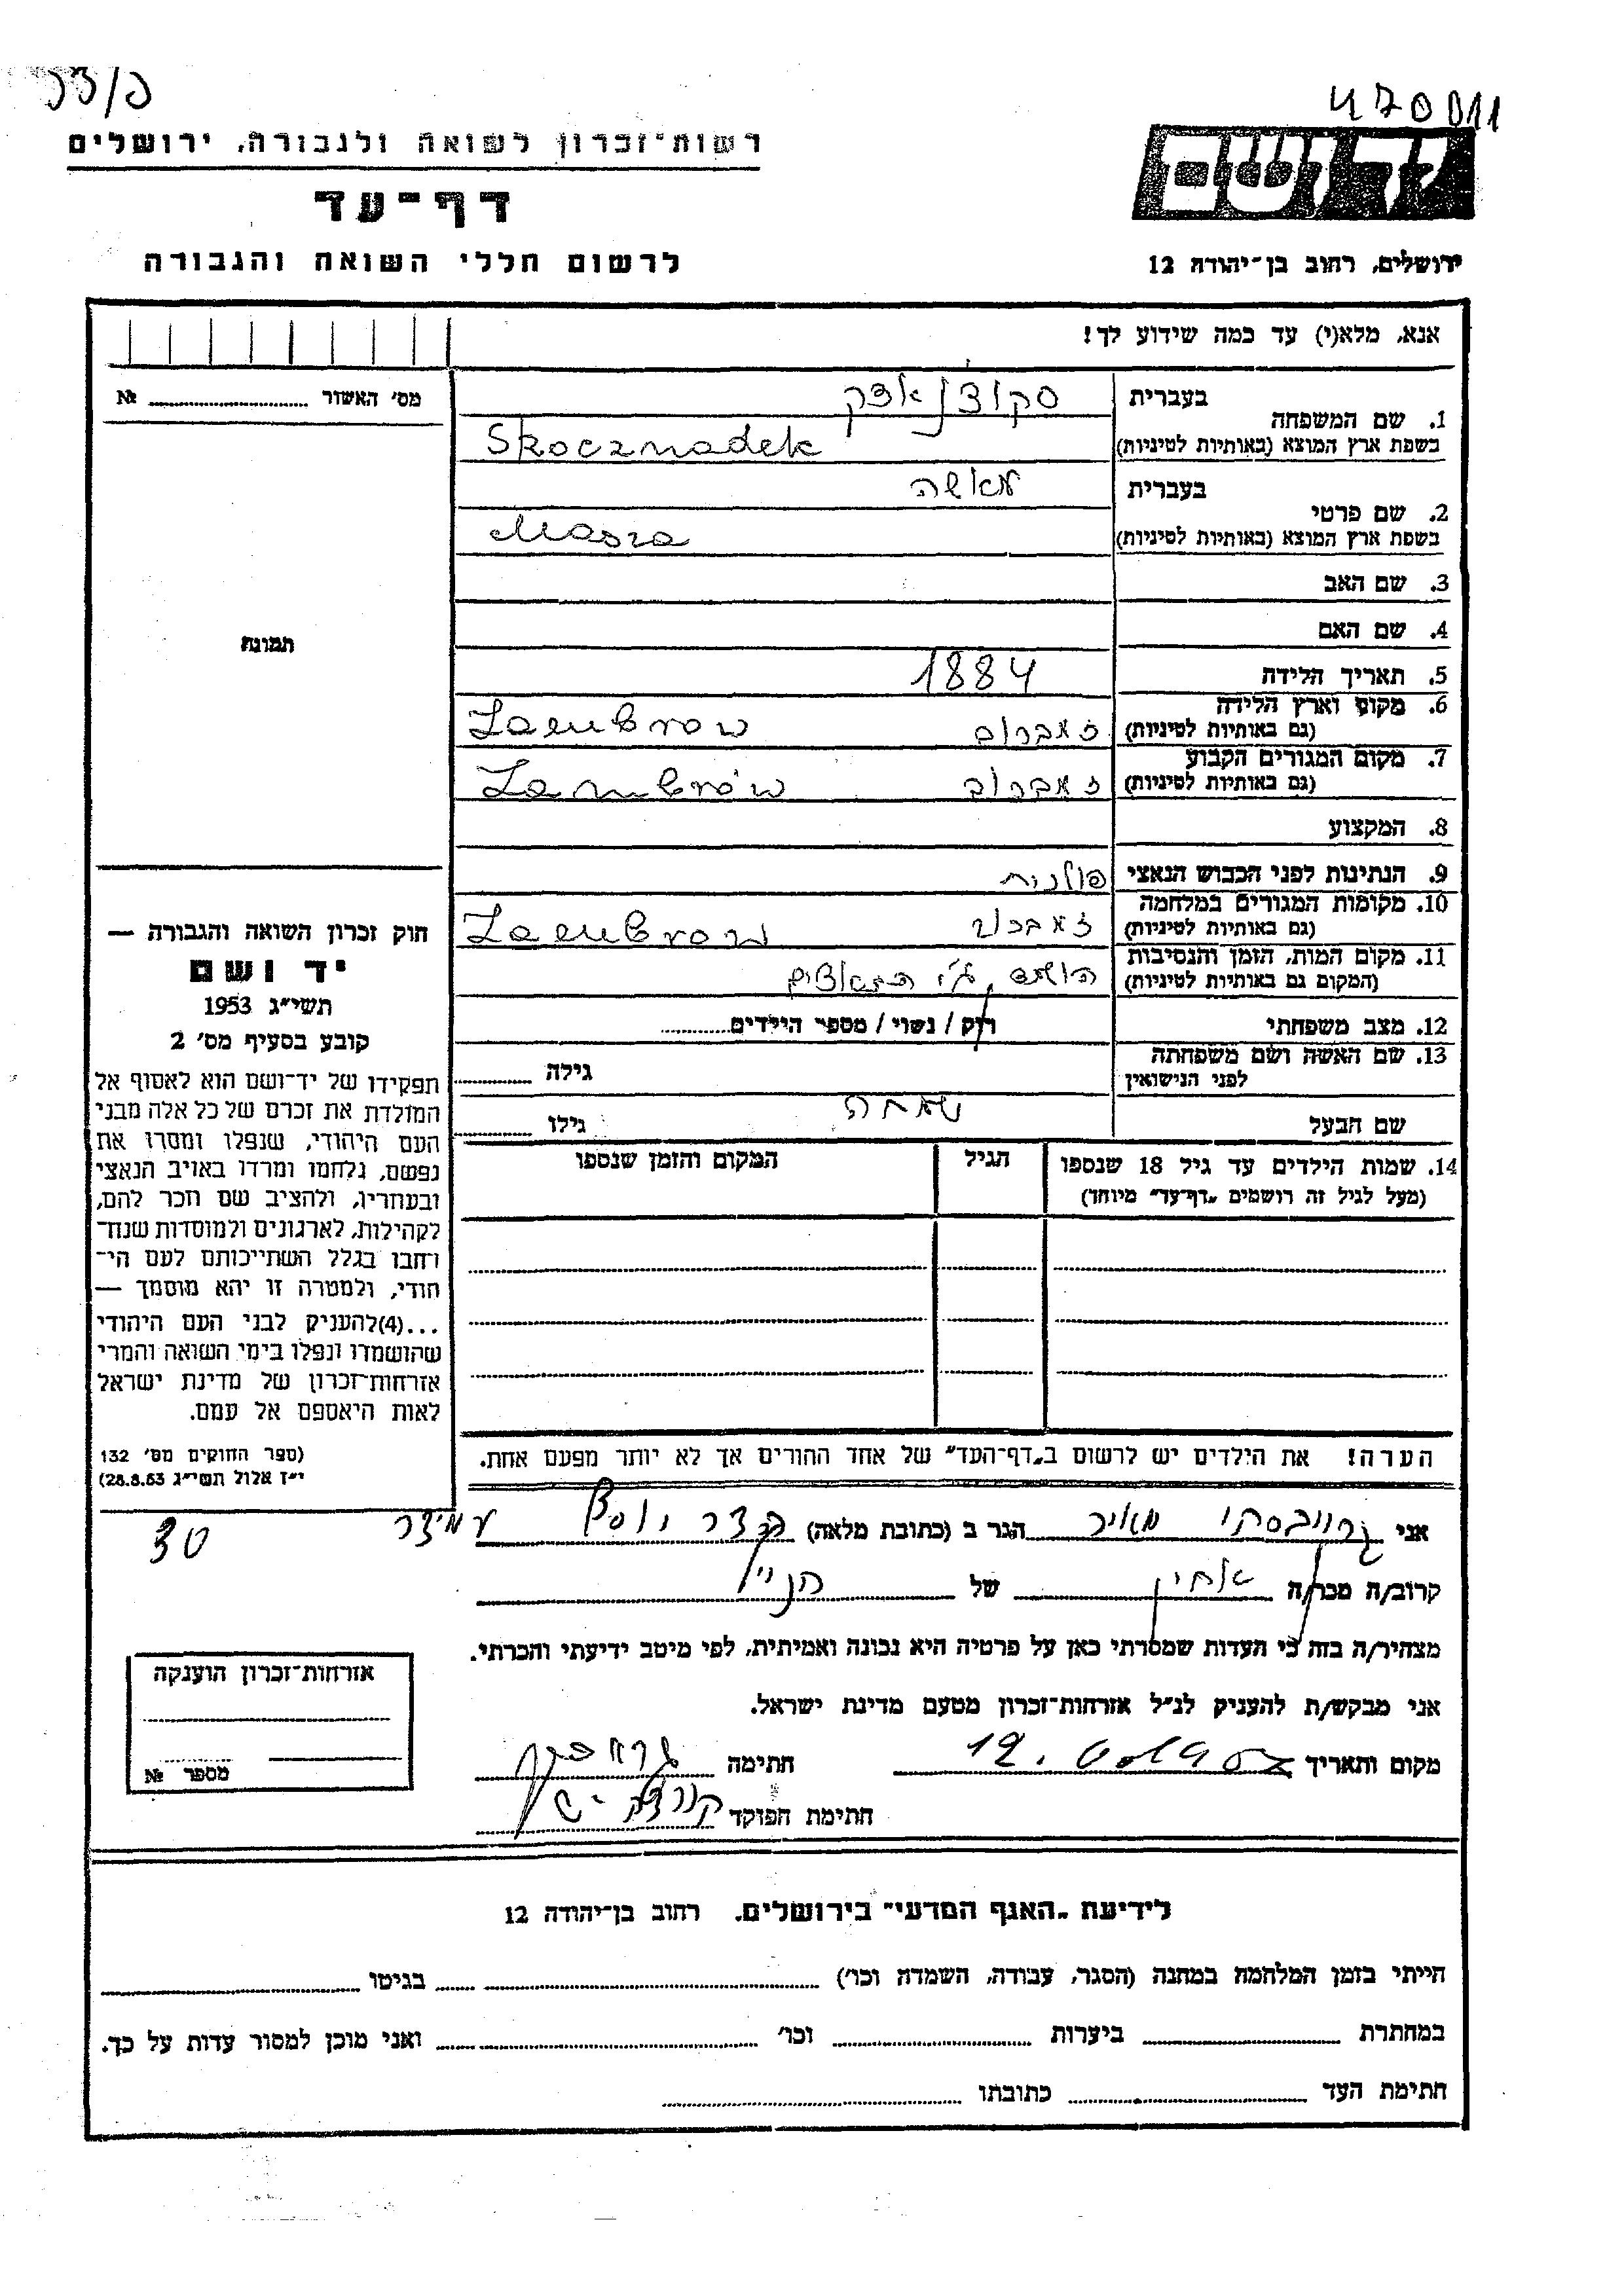 470011
רשות־זכרון לשואה ולגבורה, ירושלים
דף־עד
לרשום חללי השואה והגבורה
ידושם
ירושלים, רחוב בן־יהודה 12
אנא, מלא(י) עד כמה שידוע לך!
מס׳ האשור № 
1. שם המשפחה
בעברית סקוצנאדק
בשפת ארץ המוצא (באותיות לטיניות) Skocznadek
2. שם פרטי
בעברית מאשה
בשפת ארץ המוצא (באותיות לטיניות) Masza
3. שם האב
4. שם האם
5. תאריך הלידה 1884
6. מקום וארץ הלידה
(גם באותיות לטיניות) זאמברוב Zambrow
7. מקום המגורים הקבוע
(גם באותיות לטיניות) זאמברוב Zambrów
8. המקצוע
9. הנתינות לפני הכבוש הנאצי פולנית
10. מקומות המגורים במלחמה
(גם באותיות לטיניות) Zambrow
11. מקום המות, הזמן והנסיבות
(המקום גם באותיות לטיניות) ע״י הנאצים
12. מצב משפחתי רוק / נשוי / מספר הילדים
13. שם האשה ושם משפחתה
לפני הנישואין גילה
שם הבעל גילו
14. שמות הילדים עד גיל 18 שנספו
(מעל לגיל זה רושמים „דף־עד״ מיוחד)
הגיל
המקום והזמן שנספו
הערה! את הילדים יש לרשום ב„דף־העד״ של אחד ההורים אך לא יותר מפעם אחת.
תמונה
חוק זכרון השואה והגבורה —
יד ושם
תשי״ג 1953
קובע בסעיף מס׳ 2
תפקידו של יד־ושם הוא לאסוף אל
המולדת את זכרם של כל אלה מבני
העם היהודי, שנפלו ומסרו את
נפשם, נלחמו ומרדו באויב הנאצי
ובעוזריו, ולהציב שם וזכר להם,
לקהילות, לארגונים ולמוסדות שנחר־
רחבו בגלל השתייכותם לעם הי־
הודי, ולמטרה זו יהא מוסמך —
...(4)להעניק לבני העם היהודי
שהושמדו ונפלו בימי השואה והמרי
אזרחות־זכרון של מדינת ישראל
לאות היאספם אל עמם.
(ספר החוקים מס׳ 132
י״ז אלול תשי״ג 28.8.53)
אני מאיר הגר ב (כתובת מלאה)
30
קרוב/ה מכר/ה אחיין של הנ״ל
מצהיר/ה בזה כי העדות שמסרתי כאן על פרטיה היא נכונה ואמיתית, לפי מיטב ידיעתי והכרתי.
אני מבקש/ת להעניק לנ״ל אזרחות־זכרון מטעם מדינת ישראל.
מקום ותאריך חתימה
חתימת הפוקד
אזרחות־זכרון הוענקה
מספר №
לידיעת „האגף המדעי״ בירושלים. רחוב בן־יהודה 12
הייתי בזמן המלחמה במחנה (הסגר, עבודה, השמדה וכו׳) בגיטו
במחתרת ביערות וכו׳ ואני מוכן למסור עדות על כך.
חתימת העד כתובתו